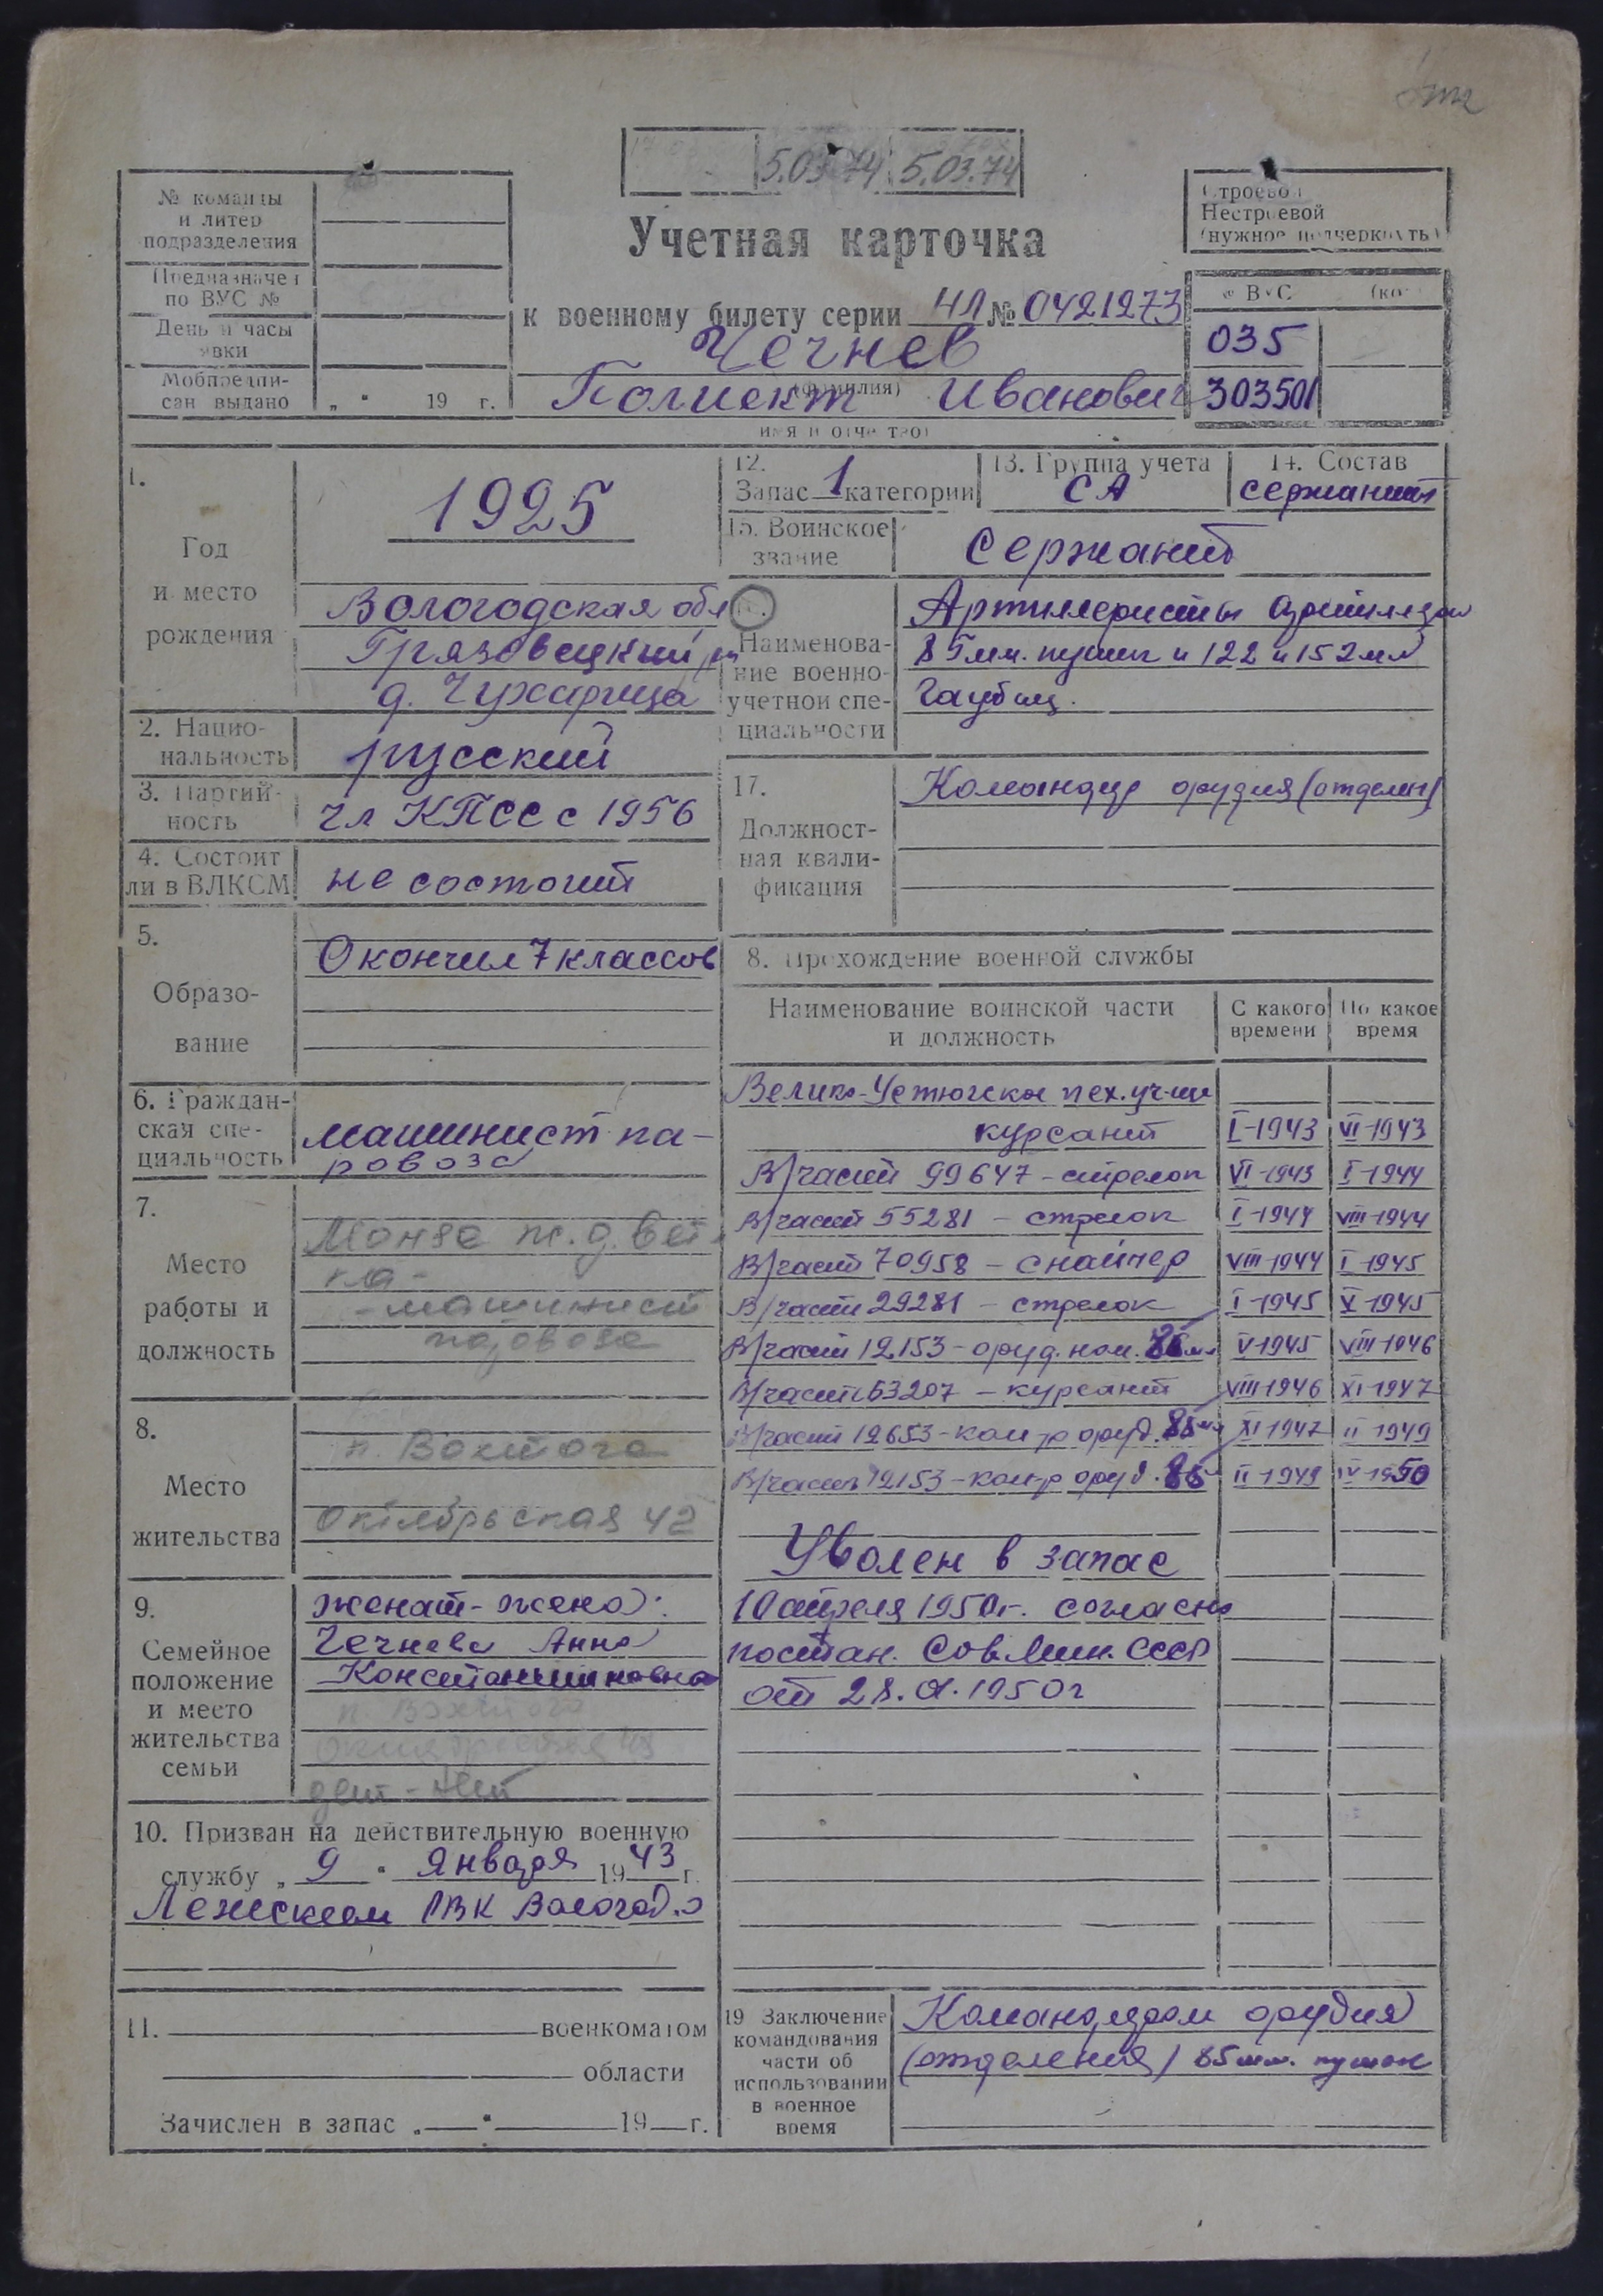 5.03.74 5.03.74
№ команды
и литер
подразделения
Предназначен
по ВУС №
День и часы
явки
Мобпредпи-
сан выдано „ " 19 г.
Учетная карточка
к военному билету серии НЛ № 0421273
Чечнев
(фамилия)
Полиект Иванович
имя и отчество)
Строевой
Нестроевой
(нужное подчеркнуть)
ВУС
035
303501
1.
Год
и место
рождения
1925
Вологодская обл
Грязовецкий
д. Чухарица
2. Нацио-
нальность
русский
3. Партий-
ность
чл КПСС с 1956
4. Состоит
ли в ВЛКСМ
не состоит
5.
Образо-
вание
Окончил 7 классов
6. Граждан-
ская спе-
циальность
машинист па-
ровоза
7.
Место
работы и
должность
Монза ж.д. вет
ка -
- машинист
паровоза
8.
Место
жительства
п. Вохтога
Октябрьская 42
9.
Семейное
положение
и место
жительства
семьи
женат - жена:
Чечнева Анна
Константиновна
п. Вохтога
дети - нет
10. Призван на действительную военную
службу „ 9 " Января 1943 г.
Лежским РВК Вологод.о
11. военкоматом
области
Зачислен в запас „ " 19 г.
12.
Запас 1 категории
13. Группа учета
СА
14. Состав
сержанты
15. Воинское
звание
Сержант
Наименова-
ние военно-
учетной спе-
циальности
Артиллеристы
85мм. пушек и 122 и 152мм
гаубиц.
17.
Должност-
ная квали-
фикация
Командир орудия (отделен)
8. Прохождение военной службы
Наименование воинской части
и должность
С какого
времени
По какое
время
Велико-Устюгское пех. уч-ще
курсант I-1943 VI-1943
В/часть 99647 - стрелок VI-1943 I-1944
В/часть 55281 - стрелок I-1944 VIII-1944
В/часть 70958 - снайпер VIII-1944 I-1945
В/часть 29281 - стрелок I-1945 V-1945
В/часть 12153 - оруд. ном. 85мм V-1945 VIII-1946
В/часть 63207 - курсант VIII-1946 XI-1947
В/часть 12653 - ком-р оруд. 85мм XI-1947 II-1949
В/часть 12153 - ком-р оруд. 85 II-1949 IV-1950
Уволен в запас
10 апреля 1950г. согласно
постан. Сов.Мин. СССР
от 28. 1950г
19 Заключение
командования
части об
использовании
в военное
время
Командиром орудия
(отделения) 85мм. пушек